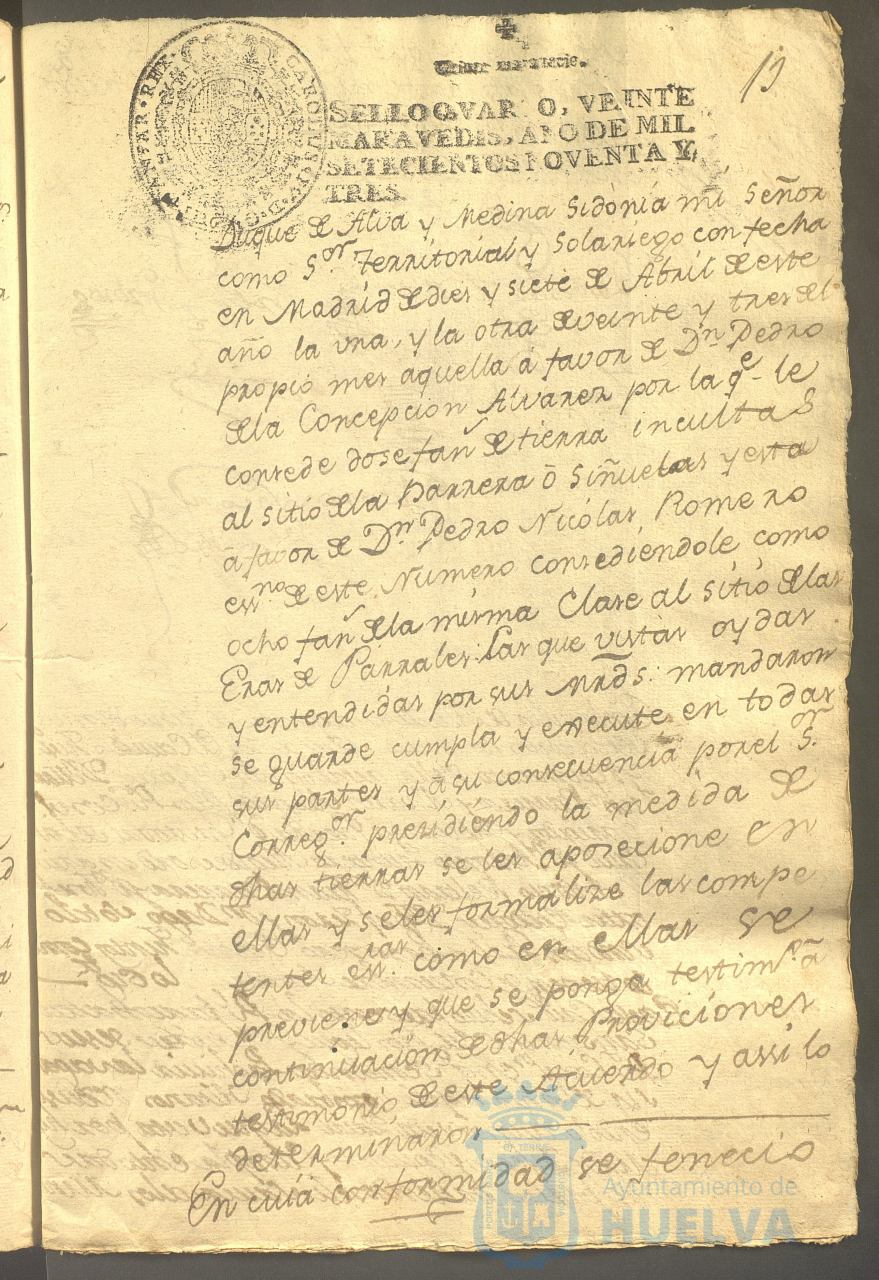 Veinte maravedis.
13
SELLO QVARTO, VEINTE
MARAVEDIS, AÑO DE MIL
SETECIENTOS NOVENTA Y
TRES.
CAROLUS IV D. G. HISPANIAR. REX
Duque de Alva y Medina Sidonia mi Señor
como S.or Territorial y Solariego con fecha
en Madrid de dies y siete de Abril de este
año la una, y la otra de veinte y tres del
propio mes aquella á favor de Dn Pedro
de la Concepcion Alvarez por la qe le
consede dose fans de tierra incultas
al sitio de la Barrera ó Siñuelas y esta
á favor de Dn Pedro Nicolas Romero
essno de este Numero consediendole como
ocho fans de la misma Clase al sitio de las
Eras de Parrales: Las que vistas oydas
y entendidas por sus Mrds: mandaron
se guarde cumpla y execute en todas
sus partes y á su consecuencia por el S.or
Correg.or presidiendo la medida de
dhas tierras se les aposecione en
ellas y se les formalize las compe
tentes essras como en ellas se
previene y que se ponga testimo á
continuacion de dhas Proviciones
testimonio de este Acuerdo y assi lo
determinaron
En cuia conformidad se fenecio
Ayuntamiento de
HUELVA